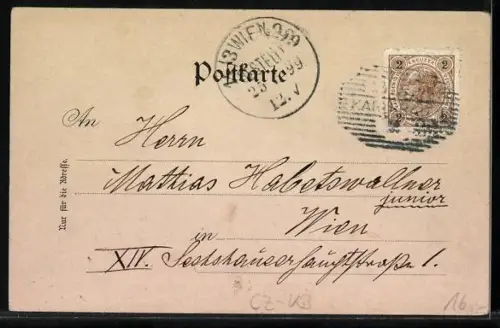 13 WIEN 9/9
BESTELLT
23 99
12.V
Postkarte
2 2
An
Herrn
Mathias Habetswallner
junior
Wien
in
XIV. Sechshauserhauptstraße 1.
Nur für die Adresse.
CZ-VB
16